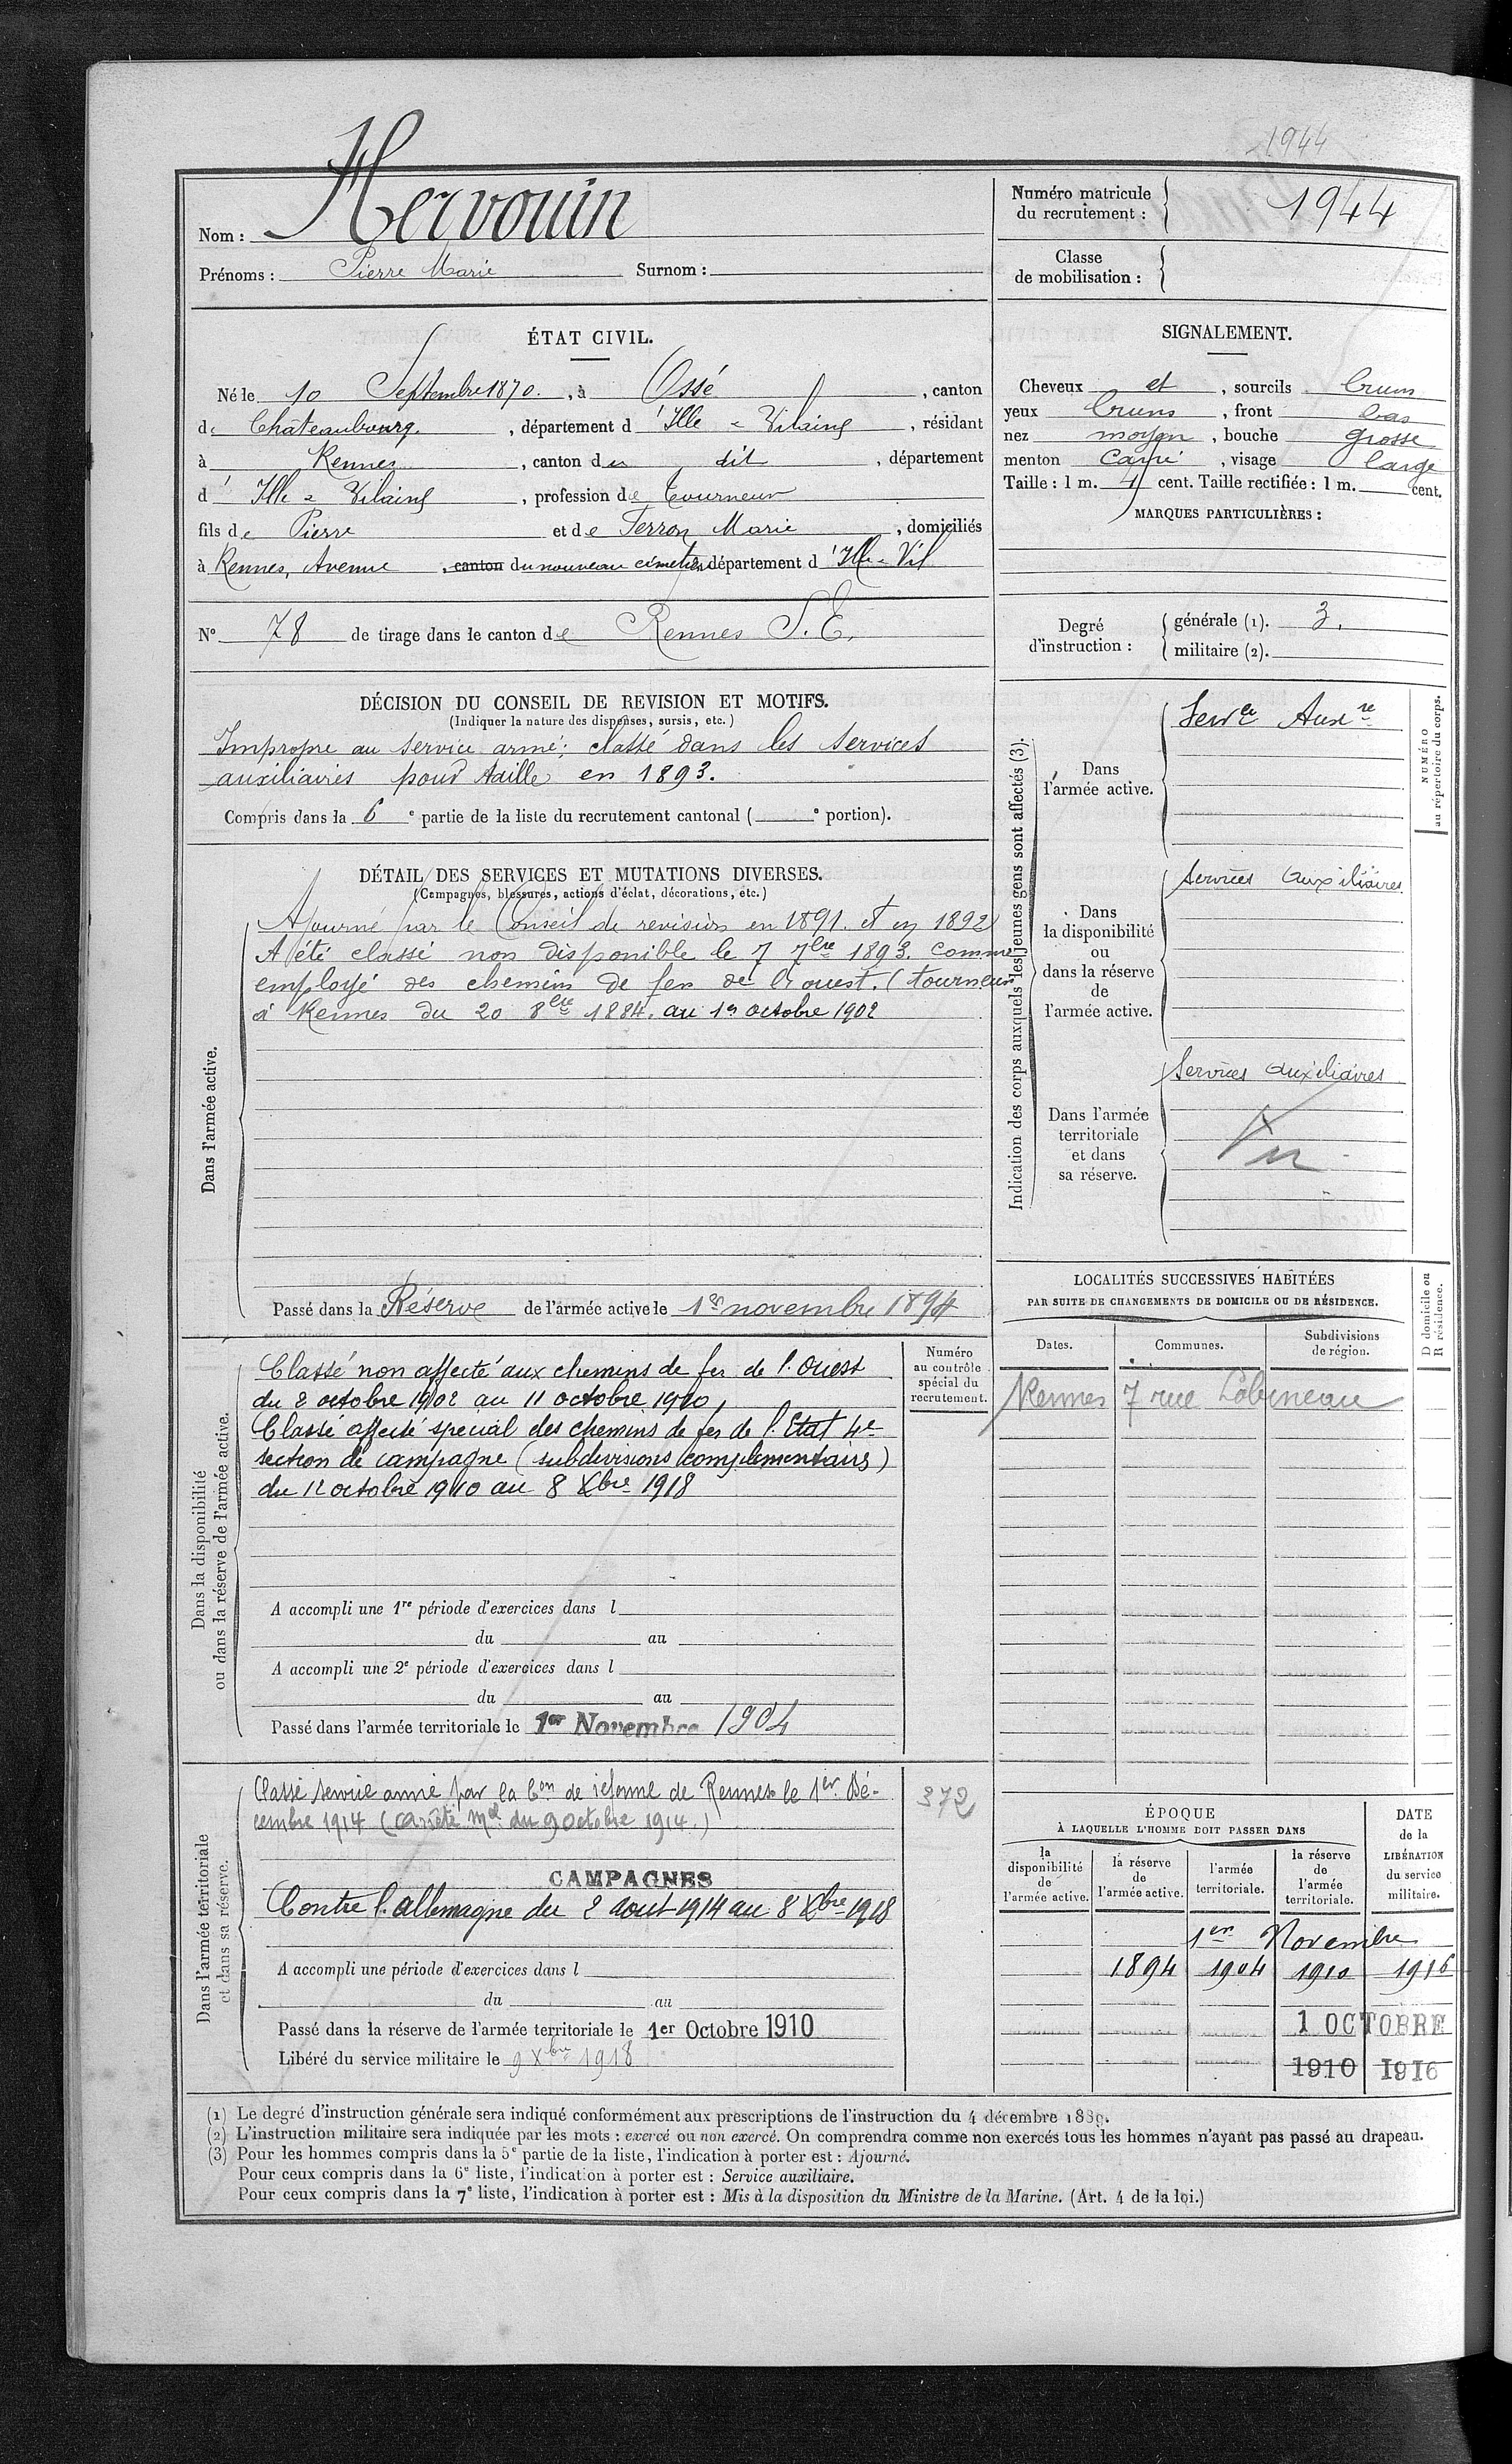 1944
Nom : Hervouin
Prénoms : Pierre Marie Surnom :
Numéro matricule du recrutement : 1944
Classe de mobilisation :
ÉTAT CIVIL.
Né le 10 Septembre 1870. , à Ossé , canton
de Châteaubourg , département d'Ille-&-Vilaine , résidant
à Rennes , canton du dit , département
d'Ille-&-Vilaine , profession de tourneur
fils de Pierre et de Ferron Marie , domiciliés
à Rennes, Avenue , canton du nouveau cimetière département d'Ille-&-Vil
N° 78 de tirage dans le canton de Rennes S. E.
SIGNALEMENT.
Cheveux et , sourcils bruns
yeux bruns , front bas
nez moyen , bouche grosse
menton carré , visage large
Taille : 1 m. cent. Taille rectifiée : 1 m. cent.
MARQUES PARTICULIÈRES :
Degré d'instruction : générale (1). 3.
militaire (2).
DÉCISION DU CONSEIL DE REVISION ET MOTIFS.
(Indiquer la nature des dispenses, sursis, etc.)
Impropre au service armé; classé dans les services
auxiliaires pour taille en 1893.
Compris dans la 6e partie de la liste du recrutement cantonal ( e portion).
DÉTAIL DES SERVICES ET MUTATIONS DIVERSES.
(Campagnes, blessures, actions d'éclat, décorations, etc.)
Dans l'armée active.
Ajourné par le Conseil de revision en 1891. et en 1892
A été classé non disponible le 7 7bre 1893. comme
employé des chemins de fer de l'ouest. (tourneur
à Rennes du 20 8bre 1884. au 1er octobre 1902
Passé dans la Réserve de l'armée active le 1er novembre 1894
Indication des corps auxquels les jeunes gens sont affectés (3).
NUMÉRO au répertoire du corps.
Dans l'armée active.
Servce Auxre
Dans la disponibilité ou dans la réserve de l'armée active.
Services Auxiliaires
Dans l'armée territoriale et dans sa réserve.
Services Auxiliaires
Dans la disponibilité ou dans la réserve de l'armée active.
Numéro au contrôle spécial du recrutement.
Classé non affecté aux chemins de fer de l'Ouest
du 2 octobre 1902 au 11 octobre 1910
Classé affecté spécial des chemins de fer de l'Etat 4e
section de campagne (subdivisions complémentaires)
du 12 octobre 1910 au 8 Xbre 1918
A accompli une 1re période d'exercices dans l
du au
A accompli une 2e période d'exercices dans l
du au
Passé dans l'armée territoriale le 1er Novembre 1904
LOCALITÉS SUCCESSIVES HABITÉES
PAR SUITE DE CHANGEMENTS DE DOMICILE OU DE RÉSIDENCE.
D domicile ou R résidence.
Dates. Communes. Subdivisions de région.
Rennes 7 rue Lobineau
Dans l'armée territoriale et dans sa réserve.
Classé service armé par la Con de réforme de Rennes le 1er Dé-
cembre 1914 (arrêté Mel du 9 octobre 1914.)
372
CAMPAGNES
Contre l'allemagne du 2 aout 1914 au 8 Xbre 1918
A accompli une période d'exercices dans l
du au
Passé dans la réserve de l'armée territoriale le 1er Octobre 1910
Libéré du service militaire le 9 Xbre 1918
ÉPOQUE
À LAQUELLE L'HOMME DOIT PASSER DANS
DATE de la LIBÉRATION du service militaire.
la disponibilité de l'armée active. la réserve de l'armée active. l'armée territoriale. la réserve de l'armée territoriale.
1er Novembre
1894 1904 1910 1916
1 OCTOBRE
1910 1916
(1) Le degré d'instruction générale sera indiqué conformément aux prescriptions de l'instruction du 4 décembre 1889.
(2) L'instruction militaire sera indiquée par les mots : exercé ou non exercé. On comprendra comme non exercés tous les hommes n'ayant pas passé au drapeau.
(3) Pour les hommes compris dans la 5e partie de la liste, l'indication à porter est : Ajourné.
Pour ceux compris dans la 6e liste, l'indication à porter est : Service auxiliaire.
Pour ceux compris dans la 7e liste, l'indication à porter est : Mis à la disposition du Ministre de la Marine. (Art. 4 de la loi.)